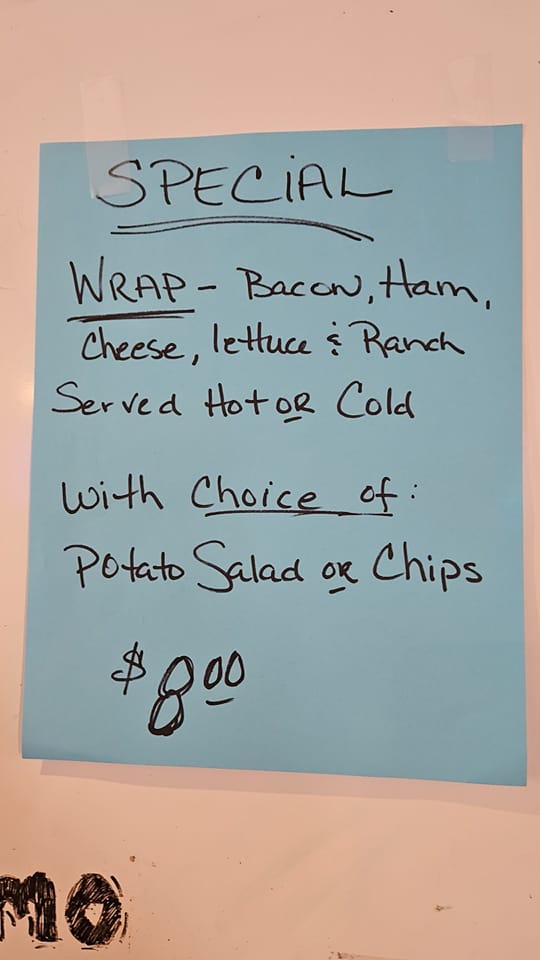 SPECiAL
WRAP - Bacon, Ham,
Cheese, lettuce & Ranch
Served Hot OR Cold
With Choice of:
Potato Salad OR Chips
$8.00
MO